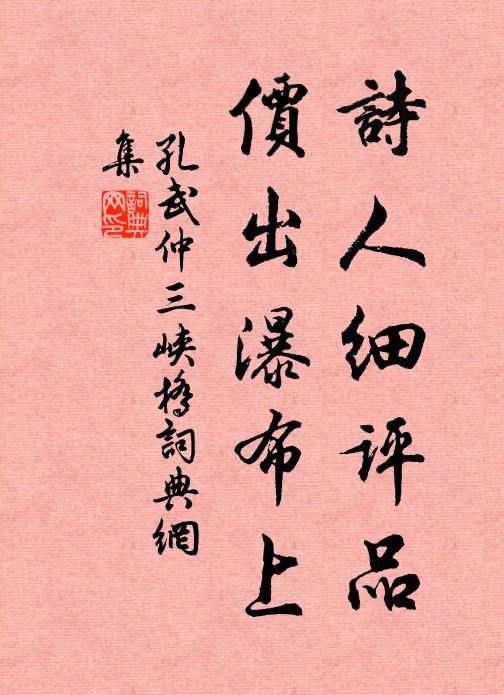 詩人細評品
價出瀑布上
孔武仲三峽橋詞典網
集
詞典
网印